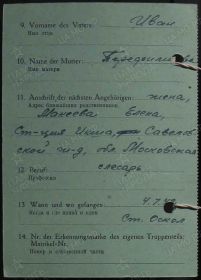 9. Vorname des Vaters: Иван
Имя отца
10. Name der Mutter:
Имя матери
11. Anschrift der nächsten Angehörigen: жена,
Адрес ближайших родственников
Елена,
Ст-ция Икша, Савелов
ской ж-д, обл Московская
слесарь
12. Beruf:
Профессия
13. Wann und wo gefangen: 4.7.42
Когда и где взят в плен
Ст. Оскол
14. Nr. der Erkennungsmarke des eigenen Truppenteils:
Matrikel-Nr.
Номер и собственной части